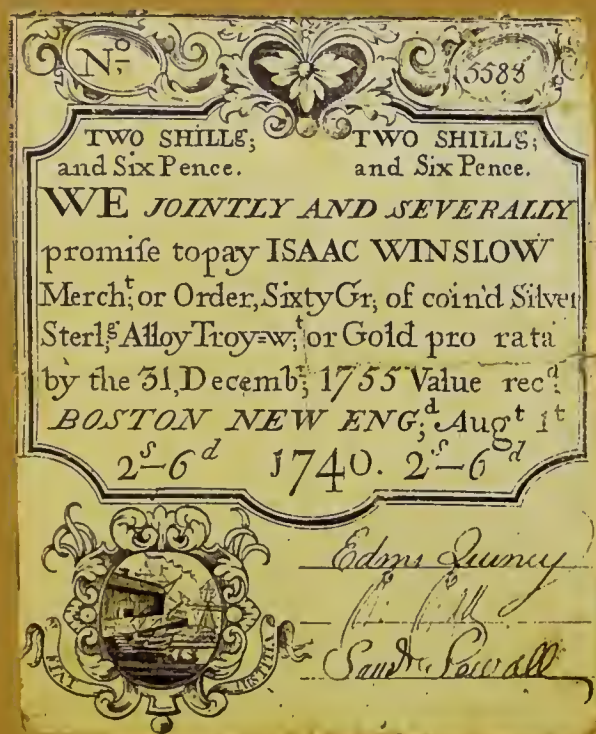 No. 5588
TWO SHILLs; TWO SHILLs;
and Six Pence. and Six Pence.
WE JOINTLY AND SEVERALLY
promiſe to pay ISAAC WINSLOW
Merch;t or Order, Sixty Gr; of coin'd Silver
Sterl;g Alloy Troy=w;t or Gold pro rata
by the 31, Decemb;r 1755 Value rec;d
BOSTON NEW ENG;d Aug t 1t
2s-6d 1740. 2s-6d
Edmd Quincy
Saml Sewall
FIAT JUSTITIA